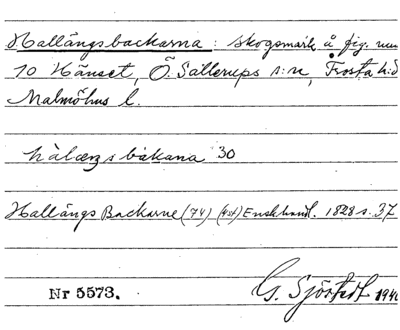 Hallängsbackarna: skogsmark å fig. num
10 Hänset, Ö. Sallerups s:n, Frosta h:d
Malmöhus l.
hàlæŋsbàkana 30
Hallängs Backarne (74) (4st) Enskhandl. 1828 s. 37
Nr 5573. G. Sjöstedt 1940